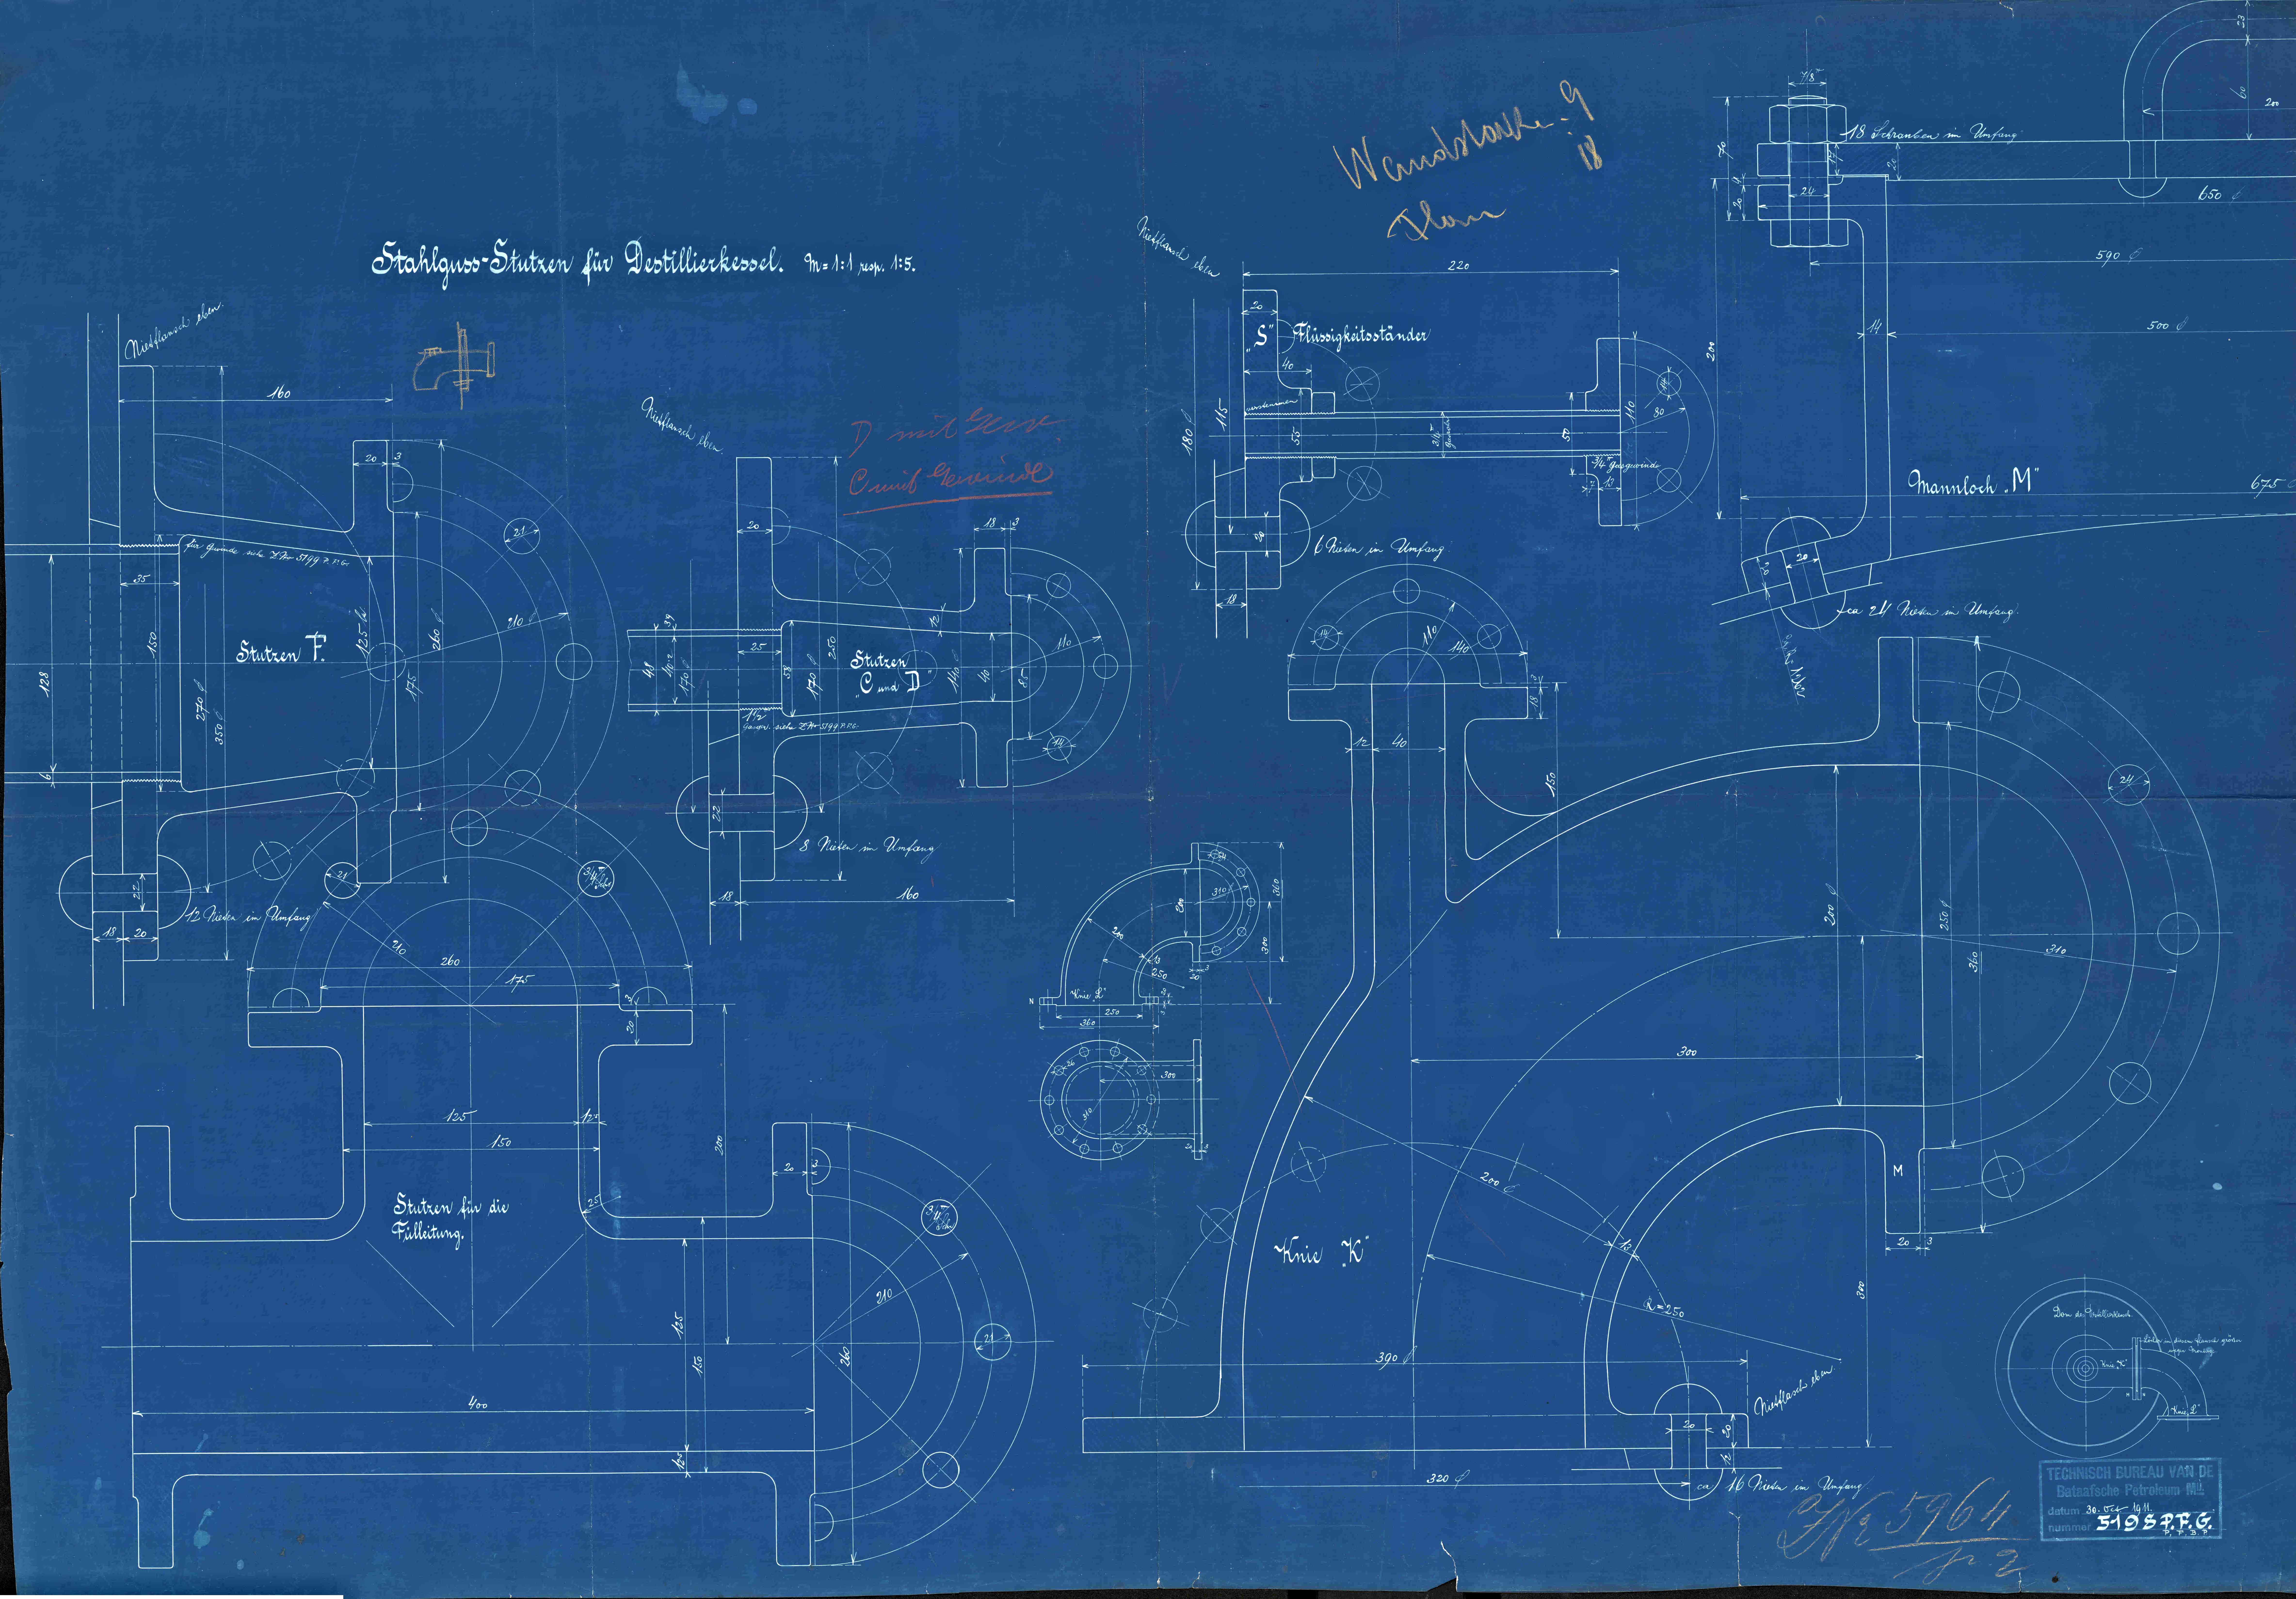 Stahlguss-Stutzen für Destillierkessel. M=1:1 resp. 1:5.
Nietflansch eben.
160
20
3
21
für Gewinde siehe Z.Nr 5199 P.F.G.
35
128
150
270 ø
350 ø
Stutzen F.
125
175
260 ø
210 ø
6
22
18
20
12 Nieten im Umfang
Nietflansch eben.
D mit
C mit Gewinde
20
18
3
12
25
170 ø
250
Stutzen
"C und D"
140
40
85
110
14
1½"
siehe Z.Nr 5199 P.F.G.
22
8 Nieten im Umfang
18
160
Wandstarke - 9
18
Nietflansch eben
220
20
"S" Flüssigkeitsständer
40
180 ø
115
55
50
110
80
14
¾" Gasgewinde
13
20
18
6 Nieten im Umfang
7/8"
18 Schrauben im Umfang
70
20
24
23
60
200
650 ø
590 ø
500 ø
14
200
Mannloch "M"
675 ø
20
ca 24 Nieten im Umfang.
21
¾"
210
260
175
3
20
125
150
200
25
Stutzen für die
Fülleitung.
20
3
¾"
210
21
125
150
260
400
310 ø
360
200
200
250
300
Knie "L"
N
250
360
300
310
14
110
140
18
12
40
150
200 ø
250 ø
360
310
24
300
200 ø
13
Knie "K"
R=250
M
20
3
300
390 ø
Nietflasch eben
20
20
12
320 ø
ca 16 Nieten im Umfang
Knie "K"
Knie "L"
5964
TECHNISCH BUREAU VAN DE
Bataafsche Petroleum Mij.
datum 30. Oct 1911.
nummer 5198 P.F.G.